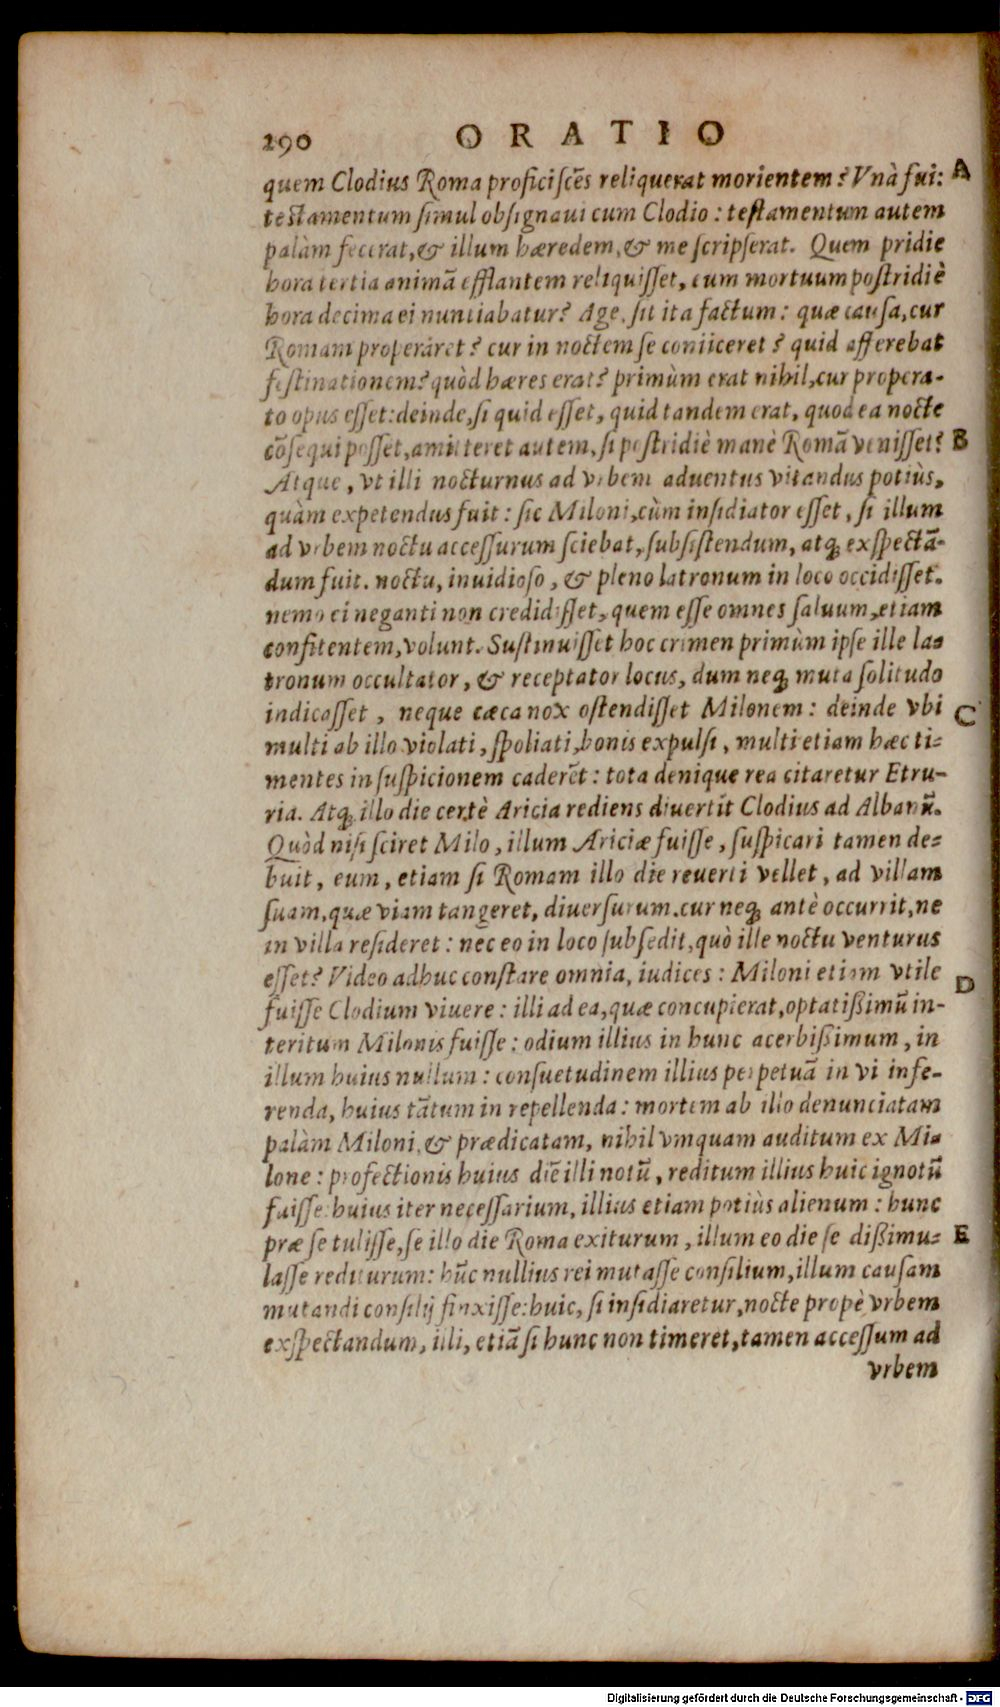 290 ORATIO
quem Clodius Roma proficiscẽs reliquerat morientem? Vnà fui: A
testamentum simul obsignaui cum Clodio: testamentum autem
palàm fecerat, & illum hæredem, & me scripserat. Quem pridie
hora tertia animã efflantem reliquisset, eum mortuum postridiè
hora decima ei nunciabatur? Age, sit ita factum: quæ causa, cur
Romam properaret? cur in noctem se coniiceret? quid afferebat
festinationem? quòd hæres erat? primùm erat nihil, cur propera-
to opus esset: deinde, si quid esset, quid tandem erat, quod ea nocte
cõsequi posset, amitteret autem, si postridiè manè Romã venisset? B
Atque, vt illi nocturnus ad vrbem aduentus vitandus potiùs,
quàm expetendus fuit: sic Miloni, cùm insidiator esset, si illum
ad vrbem noctu accessurum sciebat, subsistendum, atq; exspectã-
dum fuit. noctu, inuidioso, & pleno latronum in loco occidisset.
nemo ei neganti non credidisset, quem esse omnes saluum, etiam
confitentem, volunt. Sustinuisset hoc crimen primùm ipse ille la-
tronum occultator, & receptator locus, dum neq; muta solitudo
indicasset, neque cæca nox ostendisset Milonem: deinde vbi C
multi ab illo violati, spoliati, bonis expulsi, multi etiam hæc ti-
mentes in suspicionem caderẽt: tota denique rea citaretur Etru-
ria. Atq; illo die certè Aricia rediens diuertit Clodius ad Albanũ.
Quòd nisi sciret Milo, illum Ariciæ fuisse, suspicari tamen de-
buit, eum, etiam si Romam illo die reuerti vellet, ad villam
suam, quæ viam tangeret, diuersurum. cur neq; antè occurrit, ne
in villa resideret: nec eo in loco subsedit, quò ille noctu venturus
esset? Video adhuc constare omnia, iudices: Miloni etiam vtile D
fuisse Clodium viuere: illi ad ea, quæ concupierat, optatißimũ in-
teritum Milonis fuisse: odium illius in hunc acerbißimum, in
illum huius nullum: consuetudinem illius perpetuã in vi infe-
renda, huius tãtum in repellenda: mortem ab illo denunciatam
palàm Miloni, & prædicatam, nihil vmquam auditum ex Mi-
lone: profectionis huius diẽ illi notũ, reditum illius huic ignotũ
fuisse: huius iter necessarium, illius etiam potiùs alienum: hunc
præ se tulisse, se illo die Roma exiturum, illum eo die se dißimu- E
lasse rediturum: hũc nullius rei mutasse consilium, illum causam
mutandi consilij finxisse: huic, si insidiaretur, nocte propè vrbem
exspectandum, illi, etiã si hunc non timeret, tamen accessum ad
vrbem
Digitalisierung gefördert durch die Deutsche Forschungsgemeinschaft - DFG